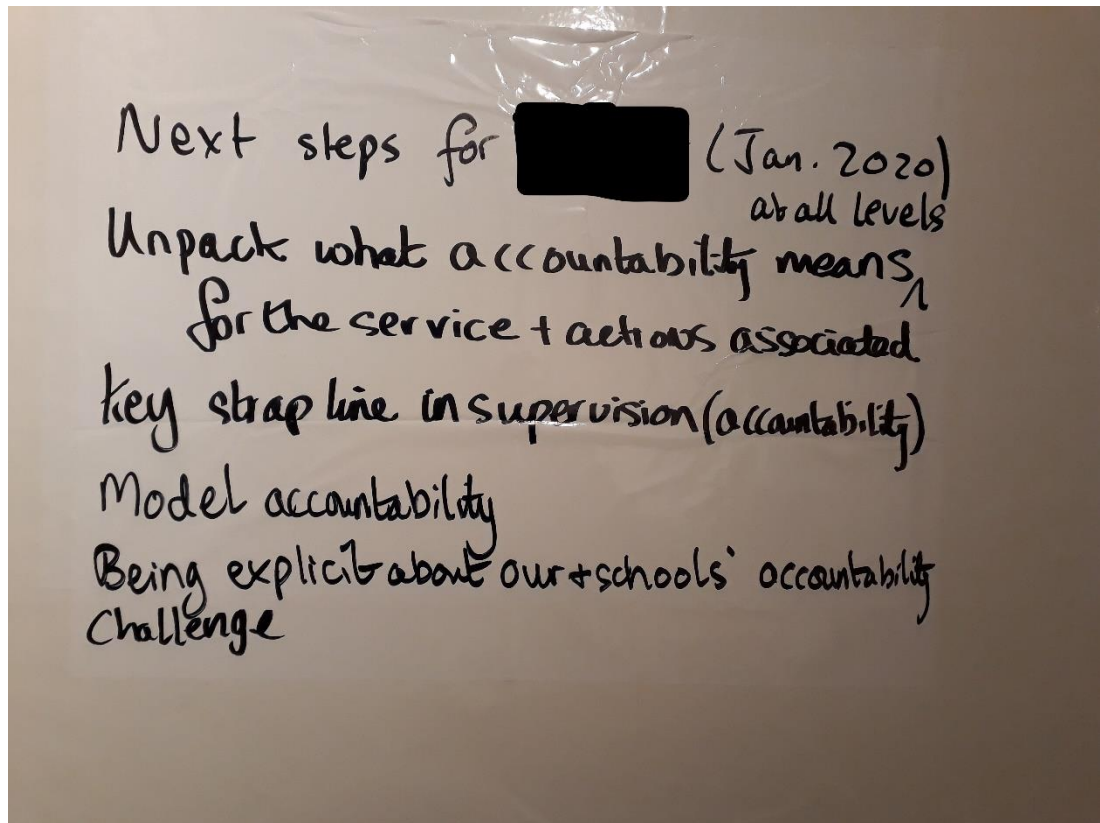 Next steps for (Jan. 2020)
at all levels
Unpack what accountability means,
for the service + actions associated
Key strap line in supervision (accountability)
Model accountability
Being explicit about our + schools' accountability
Challenge